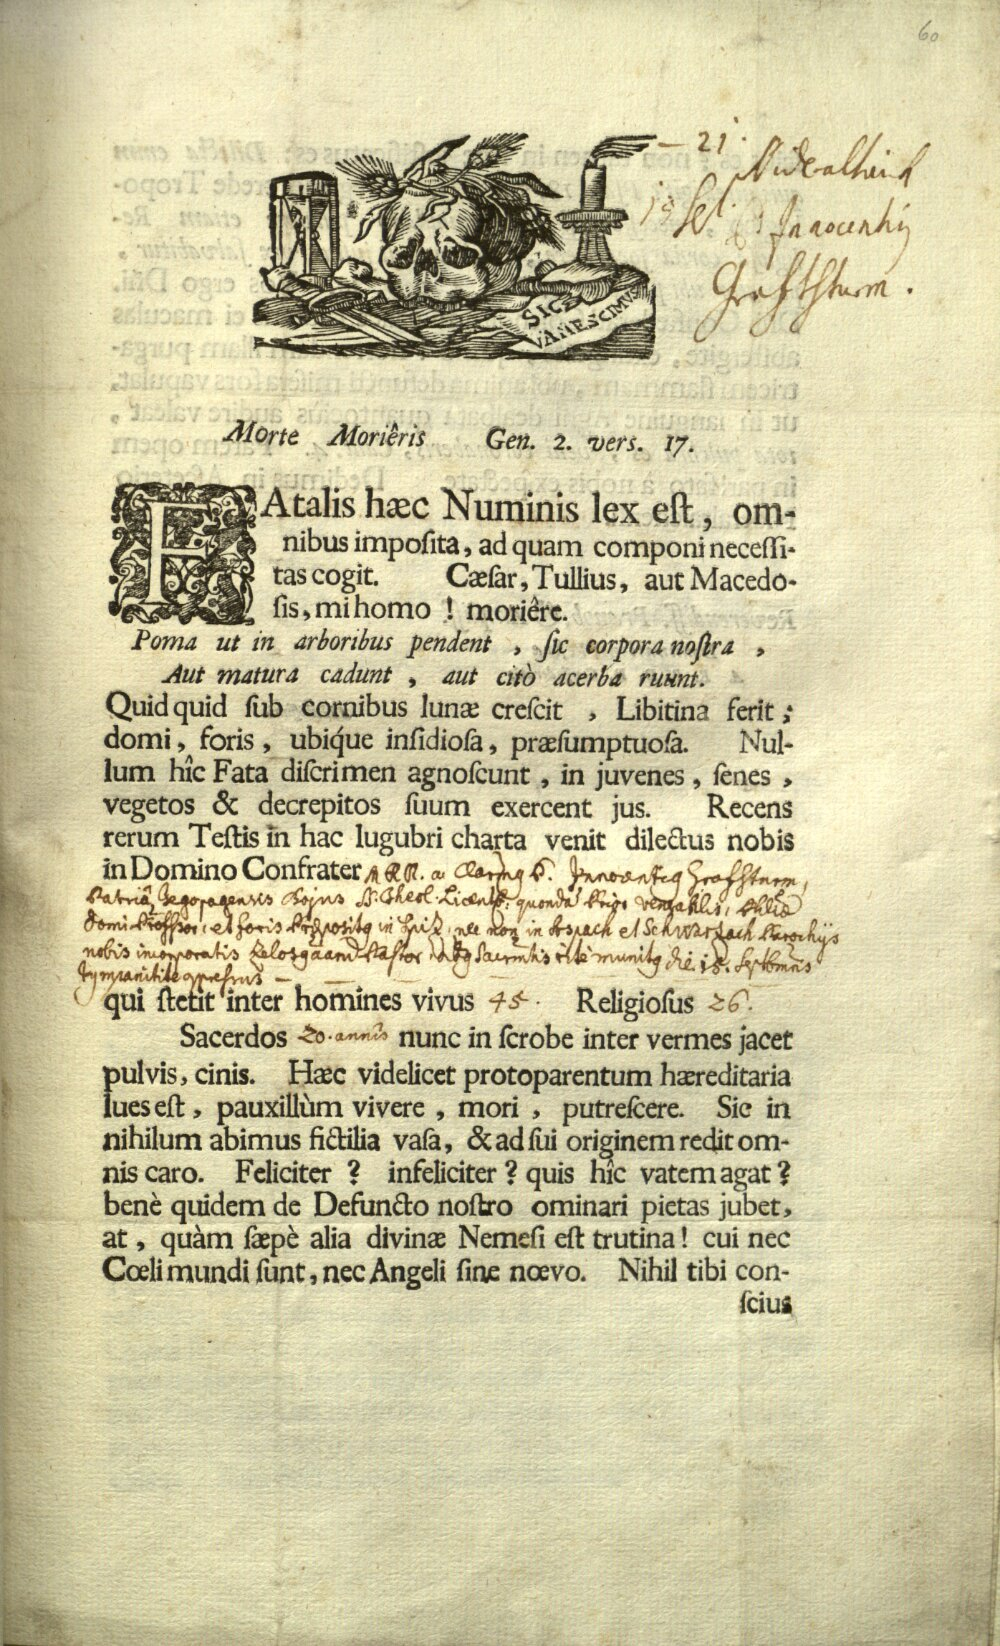 60
21.
Nideraltaich
18 Sept. P. Innocentij
Graftsturm.
SIC EVANESCIMUS
Morte Moriêris Gen. 2. vers. 17.
FAtalis hæc Numinis lex eſt, om-
nibus impoſita, ad quam componi neceſſi-
tas cogit. Cæſar, Tullius, aut Macedo-
ſis, mi homo ! moriêre.
Poma ut in arboribus pendent , ſic corpora noſtra ,
Aut matura cadunt , aut citò acerba ruunt.
Quid quid ſub cornibus lunæ creſcit , Libitina ferit ;
domi, foris, ubiq́ue inſidioſa, præſumptuoſa. Nul-
lum hîc Fata diſcrimen agnoſcunt , in juvenes, ſenes ,
vegetos & decrepitos ſuum exercent jus. Recens
rerum Teſtis in hac lugubri charta venit dilectus nobis
in Domino Confrater A. R. R. ac P. Innocentiq Graftsturm,
Patriâ Bojus SS. Theol. Licent: quondã Prior venerabilis,
domi Profſsor, et foris Præpositq in Spiz, nec non in Arspach et Schwarzach Parochijs
nobis incorporatis Pastor Sacrmtis rite munitq die 18. Septbris

qui ſtetit inter homines vivus 45. Religioſus 26.
Sacerdos 20. annis nunc in ſcrobe inter vermes jacet
pulvis, cinis. Hæc videlicet protoparentum hæreditaria
lues eſt, pauxillùm vivere , mori , putreſcere. Sic in
nihilum abimus fictilia vaſa, & ad ſui originem redit om-
nis caro. Feliciter ? infeliciter ? quis hîc vatem agat ?
benè quidem de Defuncto noſtro ominari pietas jubet,
at, quàm ſæpè alia divinæ Nemeſi eſt trutina ! cui nec
Cœli mundi ſunt, nec Angeli ſine nœvo. Nihil tibi con-
ſcius